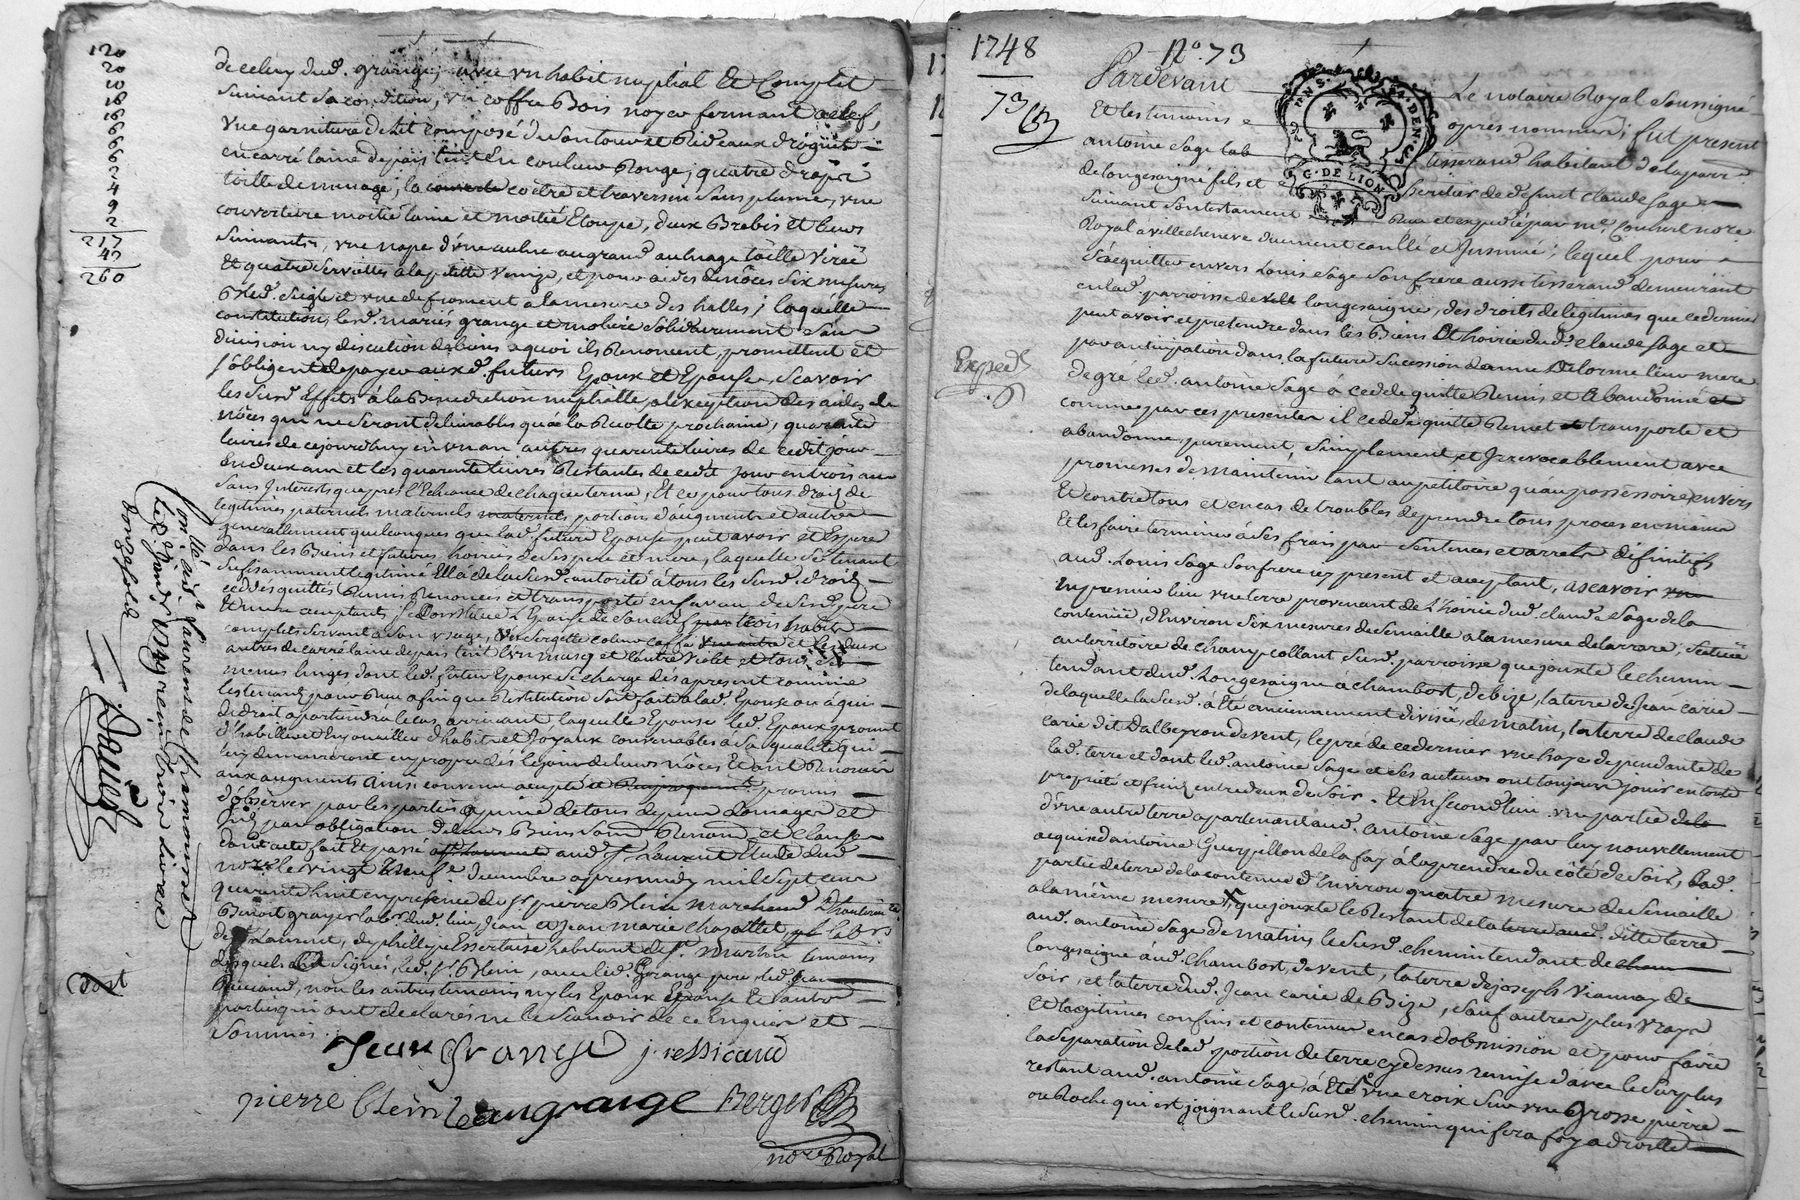 120
20
20
18
18
6
6
6
6
2
4
9
2
217
42
260
de celuy dud. grange, avec un habit nuptial Et Complet
suivant sa condition, un coffre Bois noyer fermant a clef,
une garniture de lit composé du tour et Rideaux droguet
en carré laine de pais teint En couleur Rouge, quatre draps
toille de menage, la couverte coetre et traversin sans plume, une
couverture moitié laine et moitié Etoupe, deux Brebis et leurs
suivantes, une nape d'une aulne au grand aulnage toille
Et quatre serviettes a la petite Venize, et pour aides de nôces six mesures
Bled seigle et une de froment a la mesure des halles; laquelle
constitution, lesd. mariés grange et solidairement sans
division ny discution de biens a quoi ils Renoncent, promettent et
s'obligent de payer auxd. futurs Epoux et Epouse, scavoir
les susd. Effets á la Benediction nuptialle, a l'exeption des aides de
nôces qui ne seront delivrables qu'á la Recolte prochaine, quarante
livres de cejourdhuy en un an autres quarante livres de cedit jour
En deux ans et les quarante livres Restantes de cedt jour en trois ans
sans Interests qu'aprés l'Echeance de chaque terme, Et ce pour tous droits de
legitimes paternels maternels maternels portions d'augments et autres
generallement quelconques que lad. future Epouse peut avoir et Espere
dans les Biens et futures hoiries de ses pere et mere, laquelle se tenant
suffisamment legitimé Ella de la susd. autorité á tous les susd. droits
cedde quitte Remis Renoncé et transporté en faveur de sesd. pere
Et mere acceptants, se Constitue l'Epouse de son chef trois habits
complets servant a son usage, un sergette couleur caffé une autre et les deux
autres de carré laine de pais teint l'un musq et l'autre violet et tous ses
menus linges dont led. futur Epoux se charge dès apresent comme
les tenants pour Reçu afin que Restitution soit faite a lad. Epouse ou á qui
de droit apartiendra le cas arrivant laquelle Epouse led. Epoux promet
d'habiller et Enjoualler d'habits et Joyaux convenables á sa qualité qui
luy demeureront en propre dés le jour de leurs nôces Et ont Renoncé
aux augments Ainsi convenu accepté et Reciproquement promis
d'observer par les parties a peine de tous depens domages et
par obligation de leurs Biens sous Renon. et Clauses
dont acte fait Et passé aud. St. Laurent Etude dud.
nore. le vingt neuf decembre apres midy mil sept cent
quarante huit en presence de sr. pierre Blein marchand
Benoit grayer labr. dud. lieu, Jean et Jean marie chazallet, labrs
de St Laurent, de philippe Essertaise habitant de St. martin temoins
desquels ont signé, led. sr. Blein, avec led. Grange pere, led. Jean
Ressicaud, non les autres temoins ny les Epoux Epouse Et autres
parties qui ont declarés ne le scavoir de ce Enquis et
sommés.
Jean Grange j. ressicaud
pierre blein Laugrange Berger
nore. Royal
Conllé aud. St Laurent de Chamousset
Daniel
dost
1748 No. 73
73
Exped.
Pardevant Le notaire Royal soussigné
Et les temoins apres nommés; fut present
antoine Sage lab tisserand habitant de la parr.
de longesaigne fils et heritier de defunt claude Sage
suivant son testament Reçu et expedié par me. Coubert nore.
Royal á villecheneve duement conllé et Insinué; lequel pour
s'acquitter envers Louis Sage son frere aussi tisserand demeurant
en lad. parroisse de longesaigne, des droits de legitimes que ce dernier
peut avoir et pretendre dans les Biens Et hoirie dud. claude Sage et
par anticipation dans la future succession d'anne Delorme leur mere
De gré led. antoine Sage á ceddé quitté Remis et Abandonné et
comme par ces presentes il cedde quitte Remet et transporte et
abandonne, purement, simplement, et Irrevocablement avec
promesses de maintenir tant au petitoire qu'au possessoire envers
Et contre tous et en cas de troubles de prendre tous proces en main
Et les faire terminer á ses frais par sentences et arrets definitifs
aud. Louis Sage son frere icy present et acceptant, ascavoir
En premier lieu une terre provenant de l'hoirie dud. claude Sage de la
contenüe, d'Environ six mesures de semaille a la mesure de larrare, scituée
au territoire de champcollant susd. parroisse que jouxte le chemin
tendant dud. Longesaigne á chambost, de bize, la terre de Jean carie
de laquelle la susd. á été anciennement divisée, de matin, la terre de claude
carie dit Dalbeyron de vent, le pré de ce dernier une haye dependante de
lad. terre et dont led. antoine Sage et ses auteurs ont toujours jouis en toute
proprieté et fruits entre deux de soir. Et En second lieu une partie de la
d'une autre terre apartenant aud. antoine Sage par luy nouvellement
acquise d'antoine Guerpillon de la fay á la prendre du côté de soir, Lad.
partie de terre de la contenüe d'Environ quatre mesure de semaille
a la même mesure, que jouxte le Restant de la terre aud. ditte terre
aud. antoine Sage de matin, le susd. chemin tendant de cham
longesaigne á aud. Chambost, de vent, la terre de joseph Viannay de
soir, et la terre dud. Jean carie de Bize, sauf autres plus vrays
Et legitimes confins et contenües en cas d'obmission et pour faire
la separation de lad. portion de terre cydessus remise d'avec le surplus
restant aud. antoine Sage, á Eté une croix sur une grosse pierre
ou Roche qui est joignant le susd. chemin qui sera foy a droitte